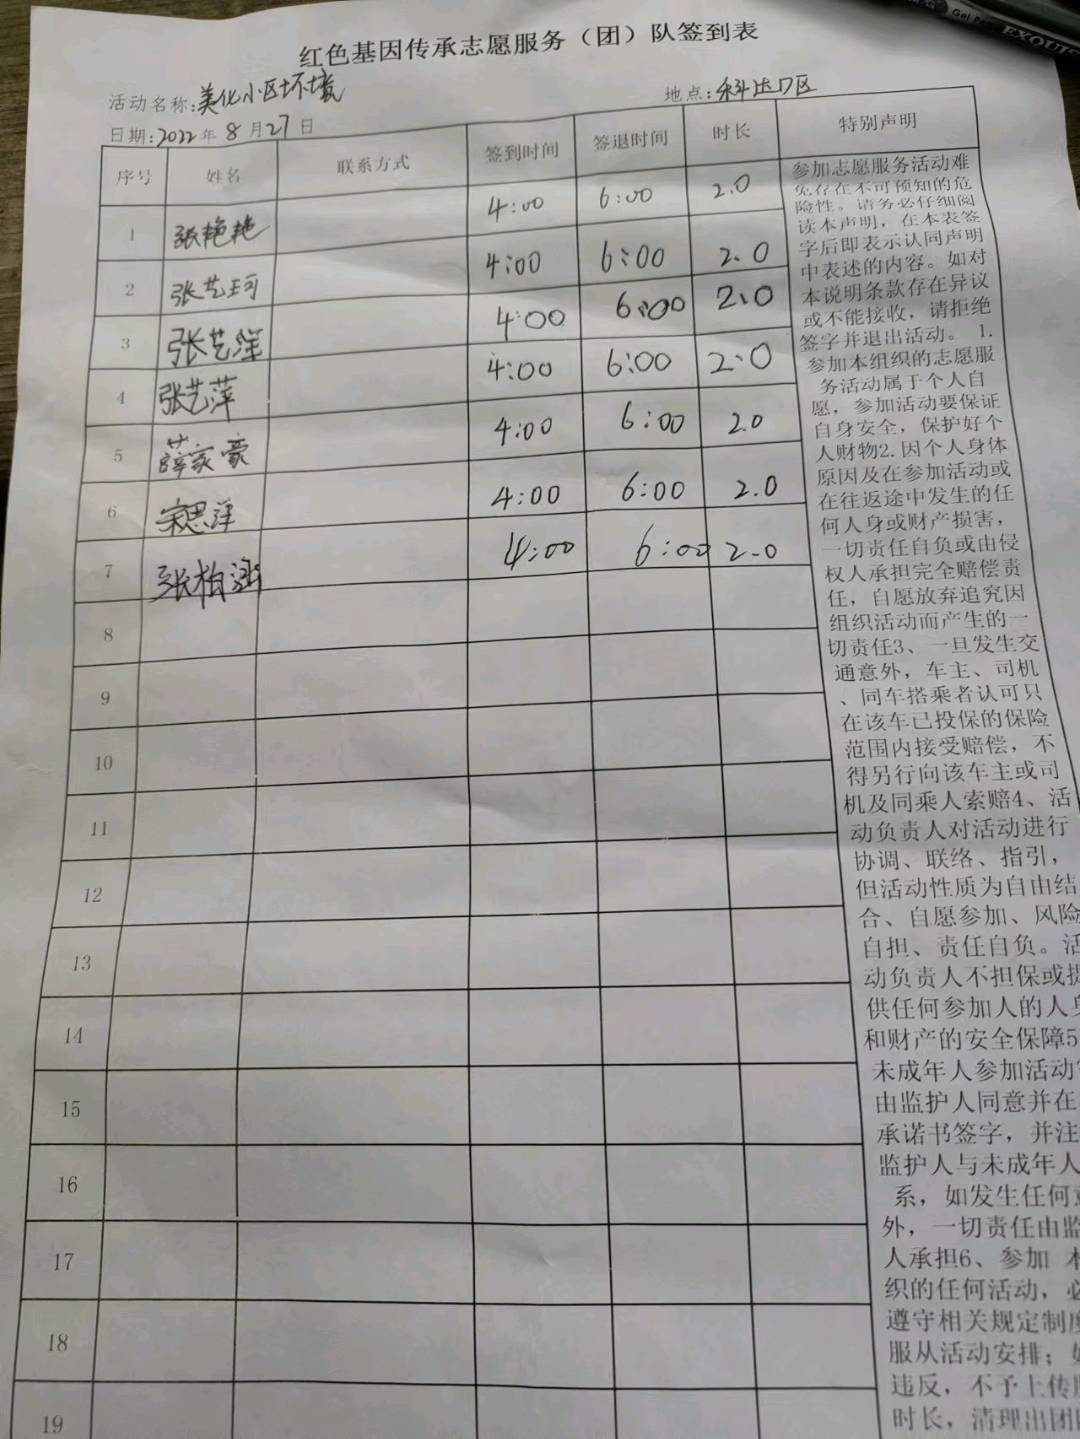 Gel Pen
EXQUIS
红色基因传承志愿服务（团）队签到表
活动名称:美化小区环境 地点:科达D区
日期:2022年8月27日
序号 姓名 联系方式 签到时间 签退时间 时长 特别声明
1 张艳艳 4:00 6:00 2.0
2 张艺珂 4:00 6:00 2.0
3 张艺滢 4:00 6:00 2.0
4 张艺萍 4:00 6:00 2.0
5 薛家豪 4:00 6:00 2.0
6 宋思泽 4:00 6:00 2.0
7 张柏涵 4:00 6:00 2.0
8
9
10
11
12
13
14
15
16
17
18
19
参加志愿服务活动难
免存在不可预知的危
险性。请务必仔细阅
读本声明，在本表签
字后即表示认同声明
中表述的内容。如对
本说明条款存在异议
或不能接收，请拒绝
签字并退出活动。 1.
参加本组织的志愿服
务活动属于个人自
愿，参加活动要保证
自身安全，保护好个
人财物2.因个人身体
原因及在参加活动或
在往返途中发生的任
何人身或财产损害，
一切责任自负或由侵
权人承担完全赔偿责
任，自愿放弃追究因
组织活动而产生的一
切责任3、一旦发生交
通意外，车主、司机
、同车搭乘者认可只
在该车已投保的保险
范围内接受赔偿，不
得另行向该车主或司
机及同乘人索赔4、活
动负责人对活动进行
协调、联络、指引，
但活动性质为自由结
合、自愿参加、风险
自担、责任自负。活
动负责人不担保或提
供任何参加人的人身
和财产的安全保障5
未成年人参加活动
由监护人同意并在
承诺书签字，并注
监护人与未成年人
系，如发生任何意
外，一切责任由监
人承担6、参加 本
织的任何活动，必
遵守相关规定制度
服从活动安排；如
违反，不予上传
时长，清理出团